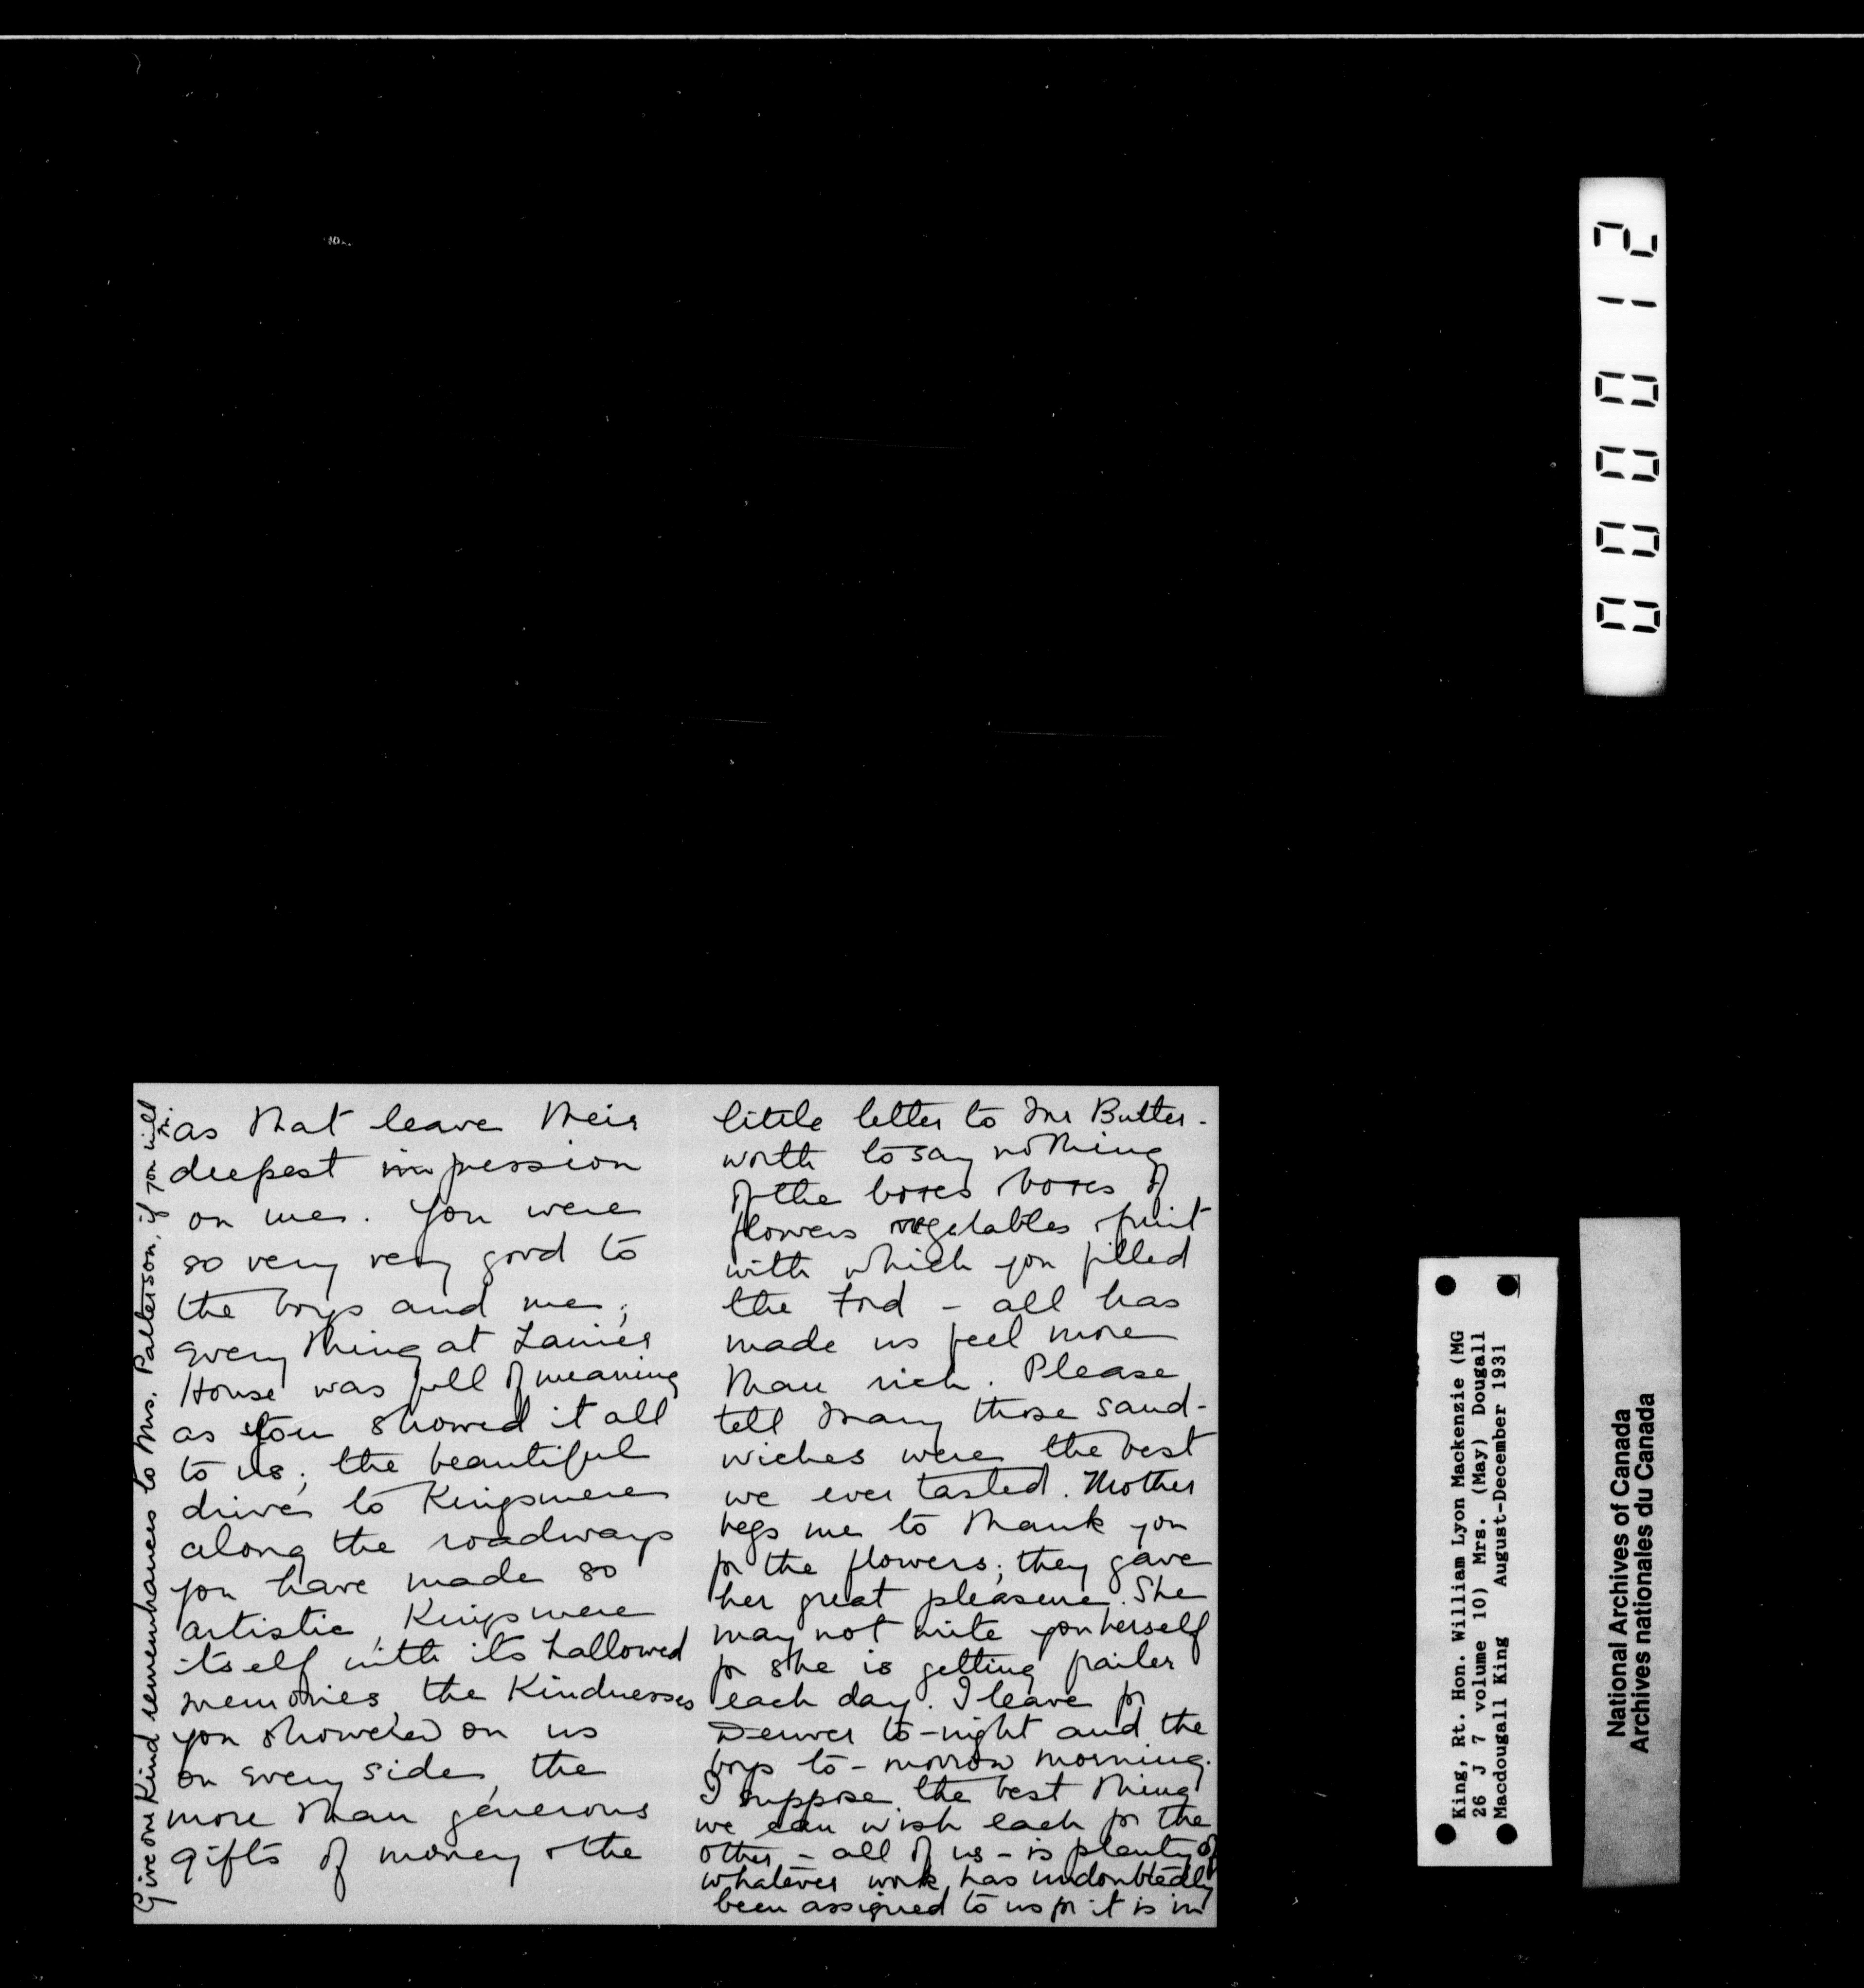 as that leave their
deepest impression
on me. You were
so very very good to
the boys and me;
everything at Laurier
House was full of meaning
as you showed it all
to us; the beautiful
drive to Kingsmere
along the roadways
you have made so
artistic, Kingsmere
itself with its hallowed
memories, the kindnesses
you showered on us
on every side, the
more than generous
gifts of money & the
Give our kind remembrances to Mrs. Patterson, if you will
little letter to Mr Butter-
worth to say nothing
of the boxes & boxes of
flowers vegetables & fruit
with which you filled
the Ford - all has
made us feel more
than rich. Please
tell Mary those sand-
wiches were the best
we ever tasted. Mother
begs me to thank you
for the flowers; they gave
her great pleasure. She
may not write you herself
for she is getting frailer
each day. I leave for
Denver to-night and the
boys to-morrow morning.
I suppose the best thing
we can wish each for the
other - all of us - is plenty of
whatever work has undoubtedly
been assigned to us for it is in
000012
King, Rt. Hon. William Lyon Mackenzie (MG
26 J 7 volume 10) Mrs. (May) Dougall
Macdougall King August-December 1931
National Archives of Canada
Archives nationales du Canada